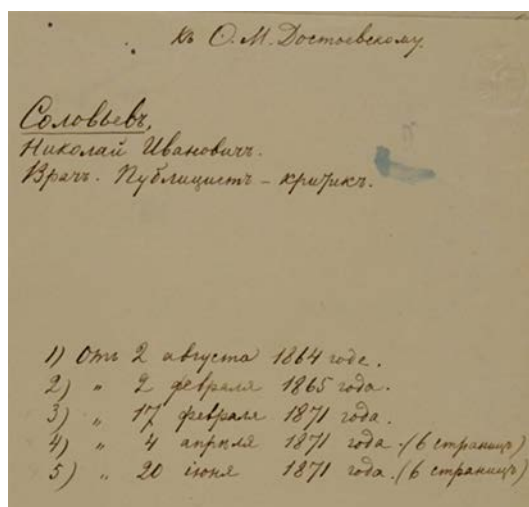 Къ Ѳ. М. Достоевскому.
Соловьевъ,
Николай Ивановичъ.
Врачъ. Публицистъ - критикъ.
1) Отъ 2 августа 1864 года.
2) „ 2 февраля 1865 года.
3) „ 17 февраля 1871 года.
4) „ 4 апрѣля 1871 года. (6 страницъ)
5) „ 20 іюня 1871 года. (6 страницъ)